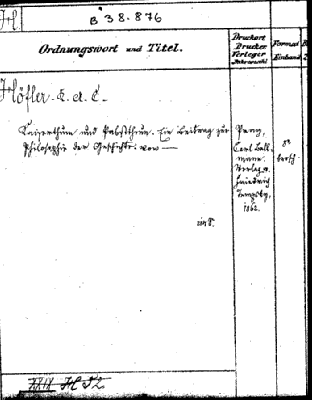 H
B 38.876
Ordnungswort und Titel.
Druckort
Drucker
Verleger
Jahreszahl
Format
Einband
Höfler. K. A. C.
Kaiserthum und Papstthum. Ein Beitrag zur
Philosophie der Geschichte. von —
Prag,
Carl Bell-
mann's
Verlag.
Friedrich
Tempsky,
1862.
8°
brosch.